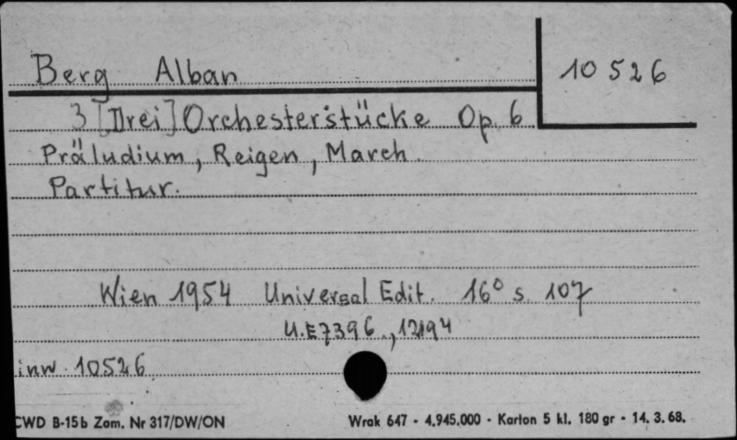 Berg Alban
10526
3 [Drei] Orchesterstücke Op. 6
Präludium, Reigen, March.
Partitur.
Wien 1954 Universal Edit. 16° s. 107
U.E 7396, 12194
inw. 10526
CWD B-15b Zam. Nr 317/DW/ON
Wrak 647 - 4.945.000 - Karton 5 kl. 180 gr - 14. 3. 68.